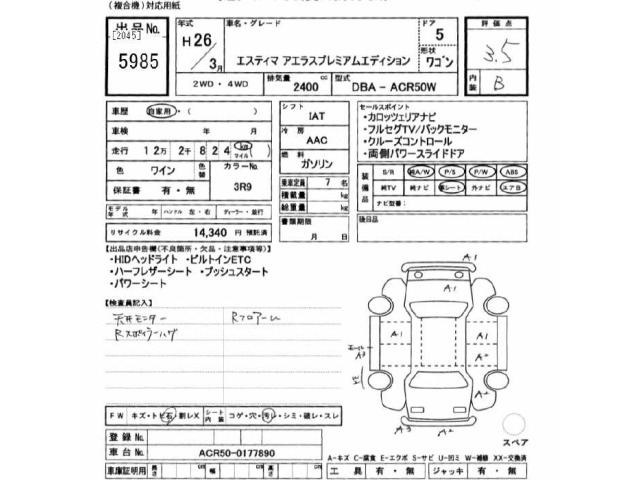 (複合機)対応用紙
出品No.
[2045]
5985
年式
H26
3月
車名・グレード
エスティマ アエラスプレミアムエディション
ドア
5
形状
ワゴン
評価点
3.5
内装
B
2WD・4WD
排気量
2400 cc
型式
DBA - ACR50W
車歴 自家用・( )
車検 年 月
走行 12万 2千 824 km マイル
色 ワイン 色替 カラーNo. 3R9
保証書 有・無
モデル年式 年 ハンドル 左・右 ディーラー・並行
リサイクル料金 14,340 円 預託済
シフト
IAT
冷房
AAC
燃料
ガソリン
乗車定員 7 名
積載量 kg
総重量 kg
書類期限
月 日
セールスポイント
・カロッツェリアナビ
・フルセグTV/バックモニター
・クルーズコントロール
・両側パワースライドドア
装備品
S/R 純A/W P/S P/W ABS
純TV 純ナビ 革シート 外ナビ エアB
ナビ型番:
後日品
【出品店申告欄(不良箇所・欠品・注意事項等)】
・HIDヘッドライト ・ビルトインETC
・ハーフレザーシート ・プッシュスタート
・パワーシート
【検査員記入】
天井モニター
Rフロアーレ
Rスポイラーハゲ
A1
A1
A1
A1
A2
A2
モール
A3
A3
A2
スペア
FW キズ・トビ石・割レX シート内装 コゲ・穴・汚レ・シミ・破レ・スレ
登録No.
車台No. ACR50-0177890
A-キズ C-腐食 E-エクボ S-サビ U-凹ミ W-補修 XX-交換済
車庫証明用 長さ cm 幅 cm 高さ cm
工具 有・無 ジャッキ 有・無